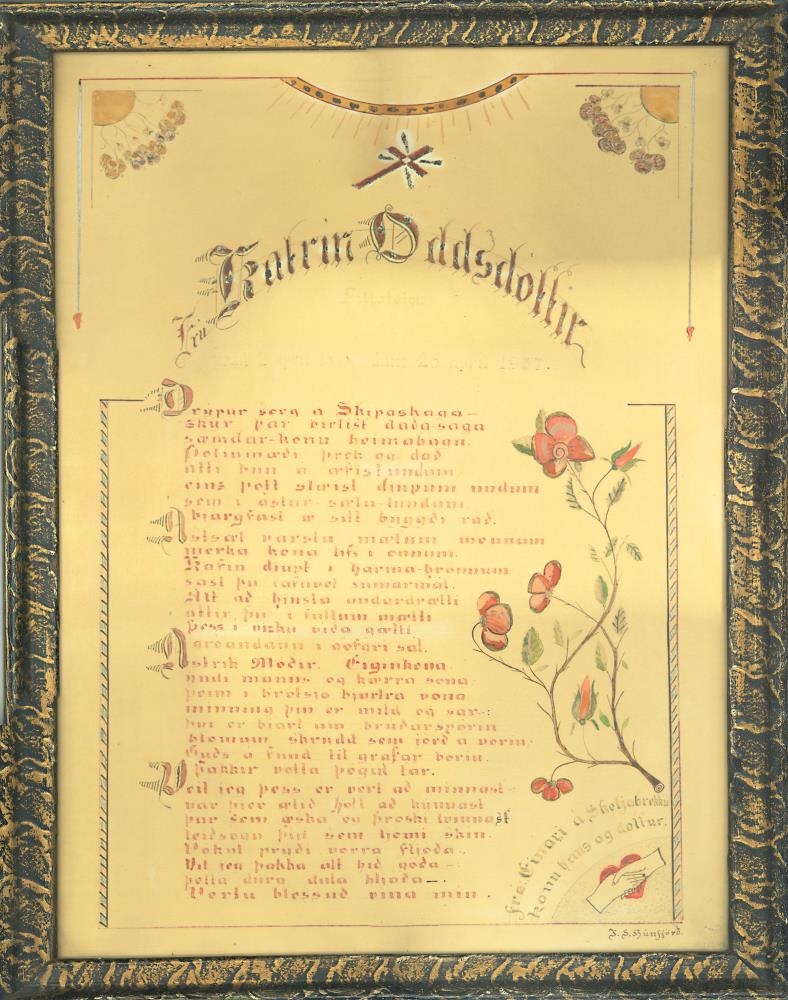 Frú Katrín Oddsdóttir
25 apríl 1937.
Drupur sorg á Skipaskaga–
skúr par birtist dada-saga
sæmdar-konu heimahaga.
Þolinmædi þrek og dád
átti hún á æfistundum
eins þótt slæist djúpum undum
sem i ástar-sælu-lundum
bjargfast æ sitt byggdi rád.
Ástsæl varstu mætum mönnum
merka kona lífs i önnum.
djúpt i harma-hrönnum
sást þú sumarmál.
Alt ad hinsta andardrætti
áttir þú i fullum mætti
þess i vizku vida gætti
i göfgri sál.
Ástrik Módir. Eiginkona
undi manns og kærra sona
þeim i brotsjó bjartra vona
minning þin er mild og sár-:
þvi er bjart um brúdarsporin
blómum skrydd sem jörd á vorin
Guds á fund til grafar borin.
Þakkir votta þögul tár.
Veit jeg þess er vert ad minnast
var hjer ætid holt ad kynnast
þar sem æska og þroski tvinnast
leidsögn þin sem ljómi skin.
Vökul prýdi vorra fljóda-
Vil jeg þakka alt hid góda-:
þetta dýra dula hljóda-.
Vertu blessud vina min.
frá: Einari á Skeljabrekku
konu hans og dóttur.
J. S. Húnfjörd.